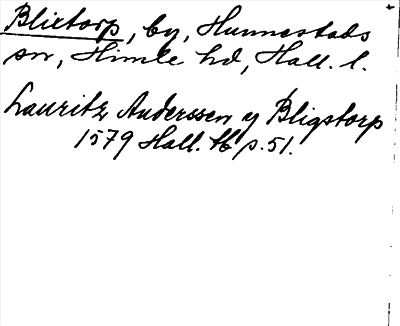 Blixtorp, by, Hunnestads
sn, Himle hd, Hall. l.
Lauritz Anderssen y Bligstorp
1579 Hall. tb p. 51.